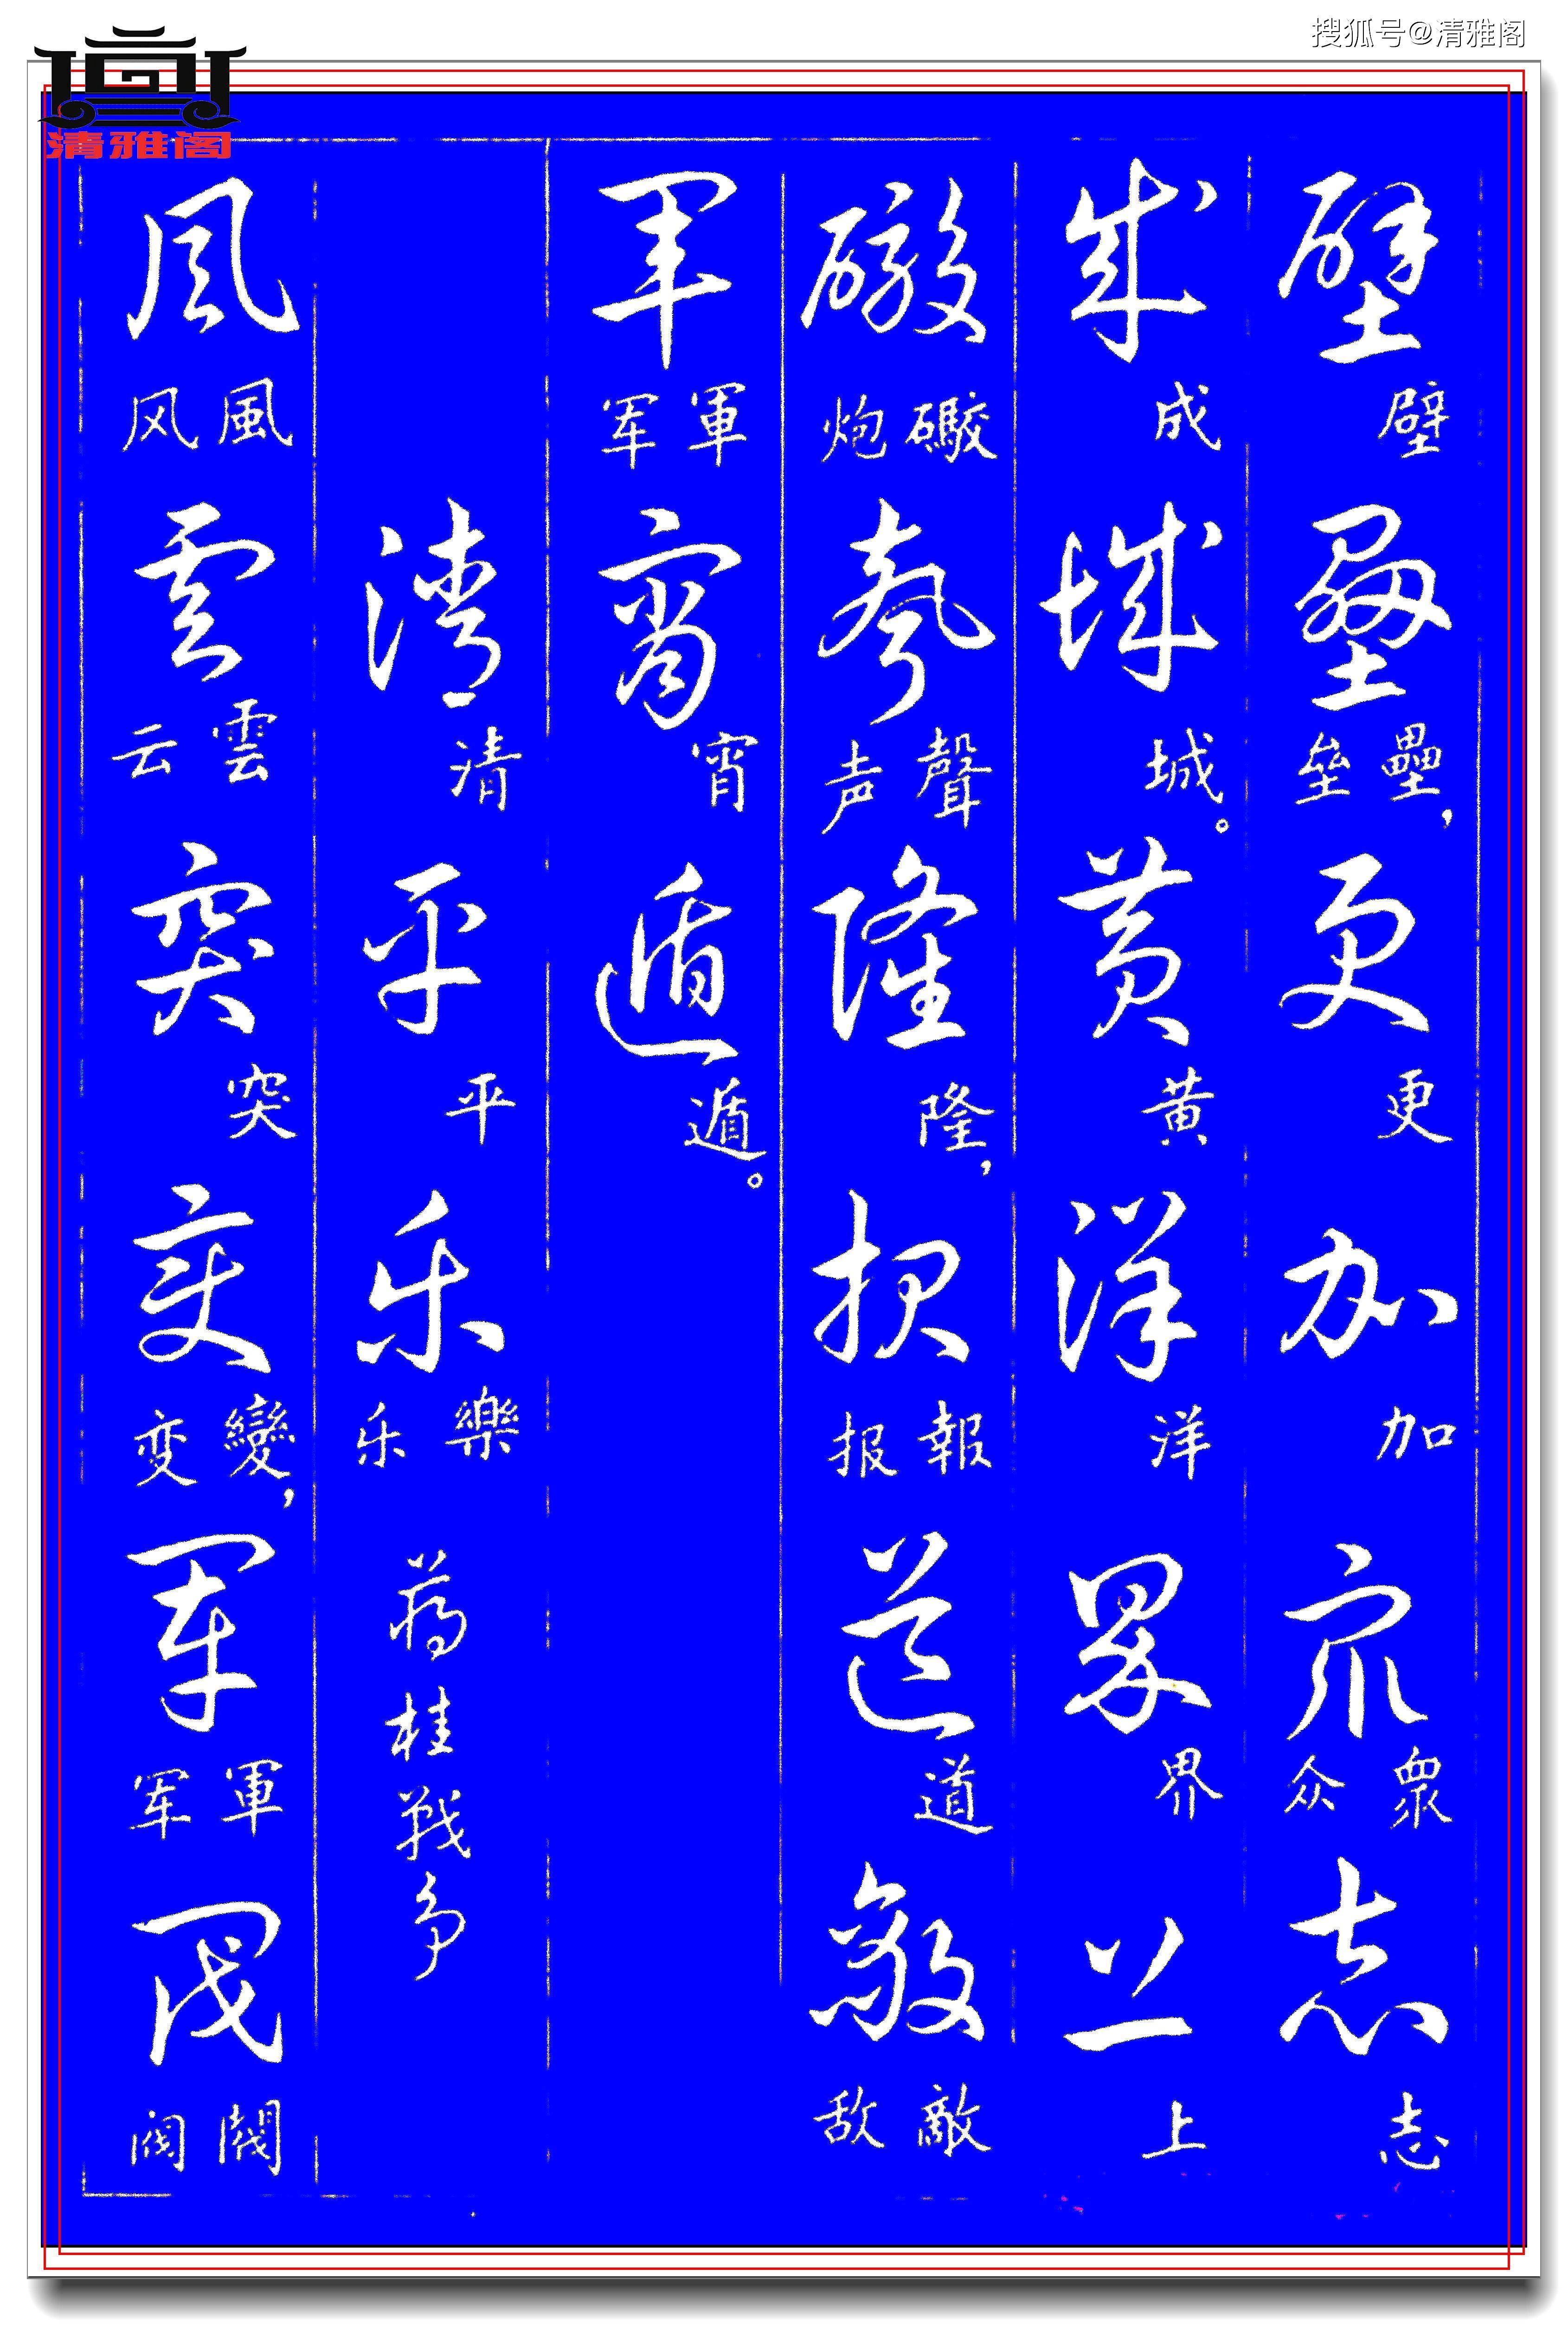 搜狐号@清雅阁
清雅阁
壁壘更加眾志
壁 壘垒， 更 加 眾众 志
成城黄洋界上
成 城。 黄 洋 界 上
礮聲隆報道敵
礮炮 聲声 隆， 報报 道 敵敌
軍宵遁
軍军 宵 遁。
清平樂
清 平 樂乐
蒋桂戰争
風雲突變軍閥
風风 雲云 突 變变， 軍军 閥阀